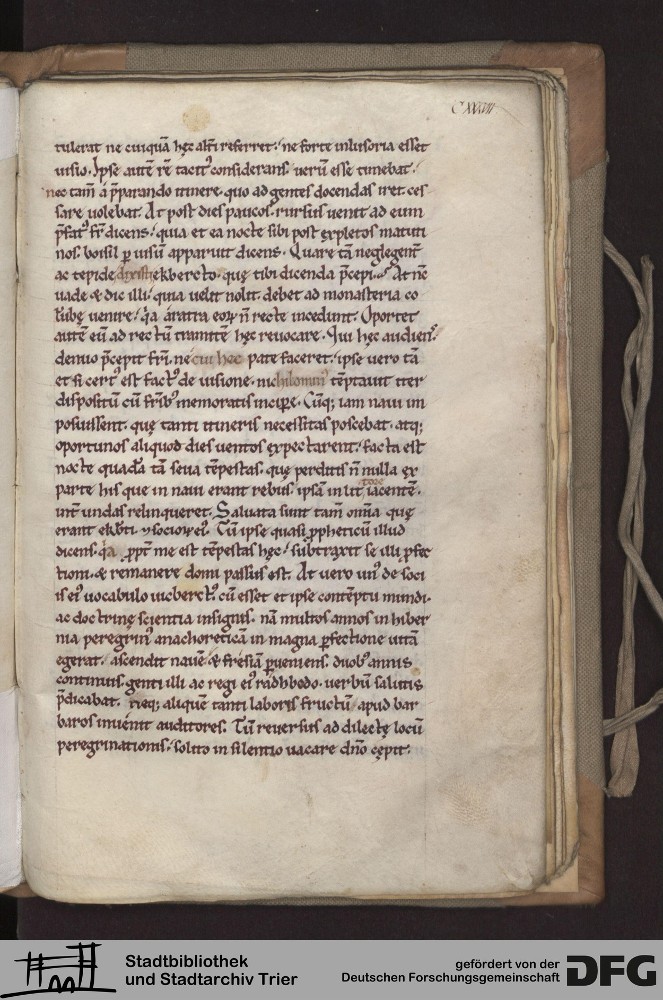 CXXXVII
tulerat ne cuiquā hęc alt̄i referret. ne forte inlusoria esset
uisio. Ipse autē rē tacit᷒ considerans. uerū esse timebat.
nec tam̄ a p̄parando itinere. quo ad gentes docendas iret. ces
sare uolebat. At post dies paucos. rursus uenit ad eum
p̄fat᷒ fr̄ dicens. quia et ea nocte sibi post expletos matuti
nos. boisil ꝑ uisū apparuit dicens. Quare tā neglegent̄
ac tepide dixisti ekberecto. quę tibi dicenda p̄cepi. At nc̄
uade & dic illi. quia uelit nolit. debet ad monasteria co
lūbę uenire. q̄a aratra eoꝝ n̄ recte incedunt. Oportet
autē eū ad rectū tramitē hęc reuocare. Qui hęc audiens.
denuo p̄cepit fr̄i. ne cui hęc pate faceret. ipse uero tā
et si cert᷒ est fact᷒ de uisione. nichilomin᷒ tēptauit iter
dispositū cū fr̄ib᷒ memoratis incipe. Cūq; iam naui im
posuissent. quę tanti itineris necessitas poscebat. atq;
oportunos aliquod dies uentos expectarent. facta est
nocte quadā tā seua tēpestas. quę perditis n̄ nulla ex
parte his que in naui erant rebus. ipsā in lit tore iacentē.
int̄ undas relinqueret. Saluata sunt tam̄ om̄ia quę
erant ekb̄ti. ⁊ socioꝝ ei᷒. Tū ipse quasi ꝓpheticū illud
dicens. q̄a ꝓpt̄ me est tēpestas hęc. subtraxit se illi ꝓfec
tioni. & remanere domi passus est. At uero un᷒ de soci
is ei᷒ uocabulo uicberct᷒. cū esset et ipse contēptu mundi.
ac doctrinę scientia insignis. nā multos annos in hiber
nia peregrin᷒ anachoreticā in magna ꝑfectione uitā
egerat. ascendit nauē. & fresiā ꝑueniens. duob᷒ annis
continuis. genti illi ac regi ei᷒ radbbedo. uerbū salutis
p̄dicabat. neq; aliquem tanti laboris fructū apud bar
baros inuenit auditores. Tū reuersus ad dilectę locū
peregrinationis. solito in silentio uacare dn̄o cępit.
Stadtbibliothek
und Stadtarchiv Trier
gefördert von der
Deutschen Forschungsgemeinschaft
DFG